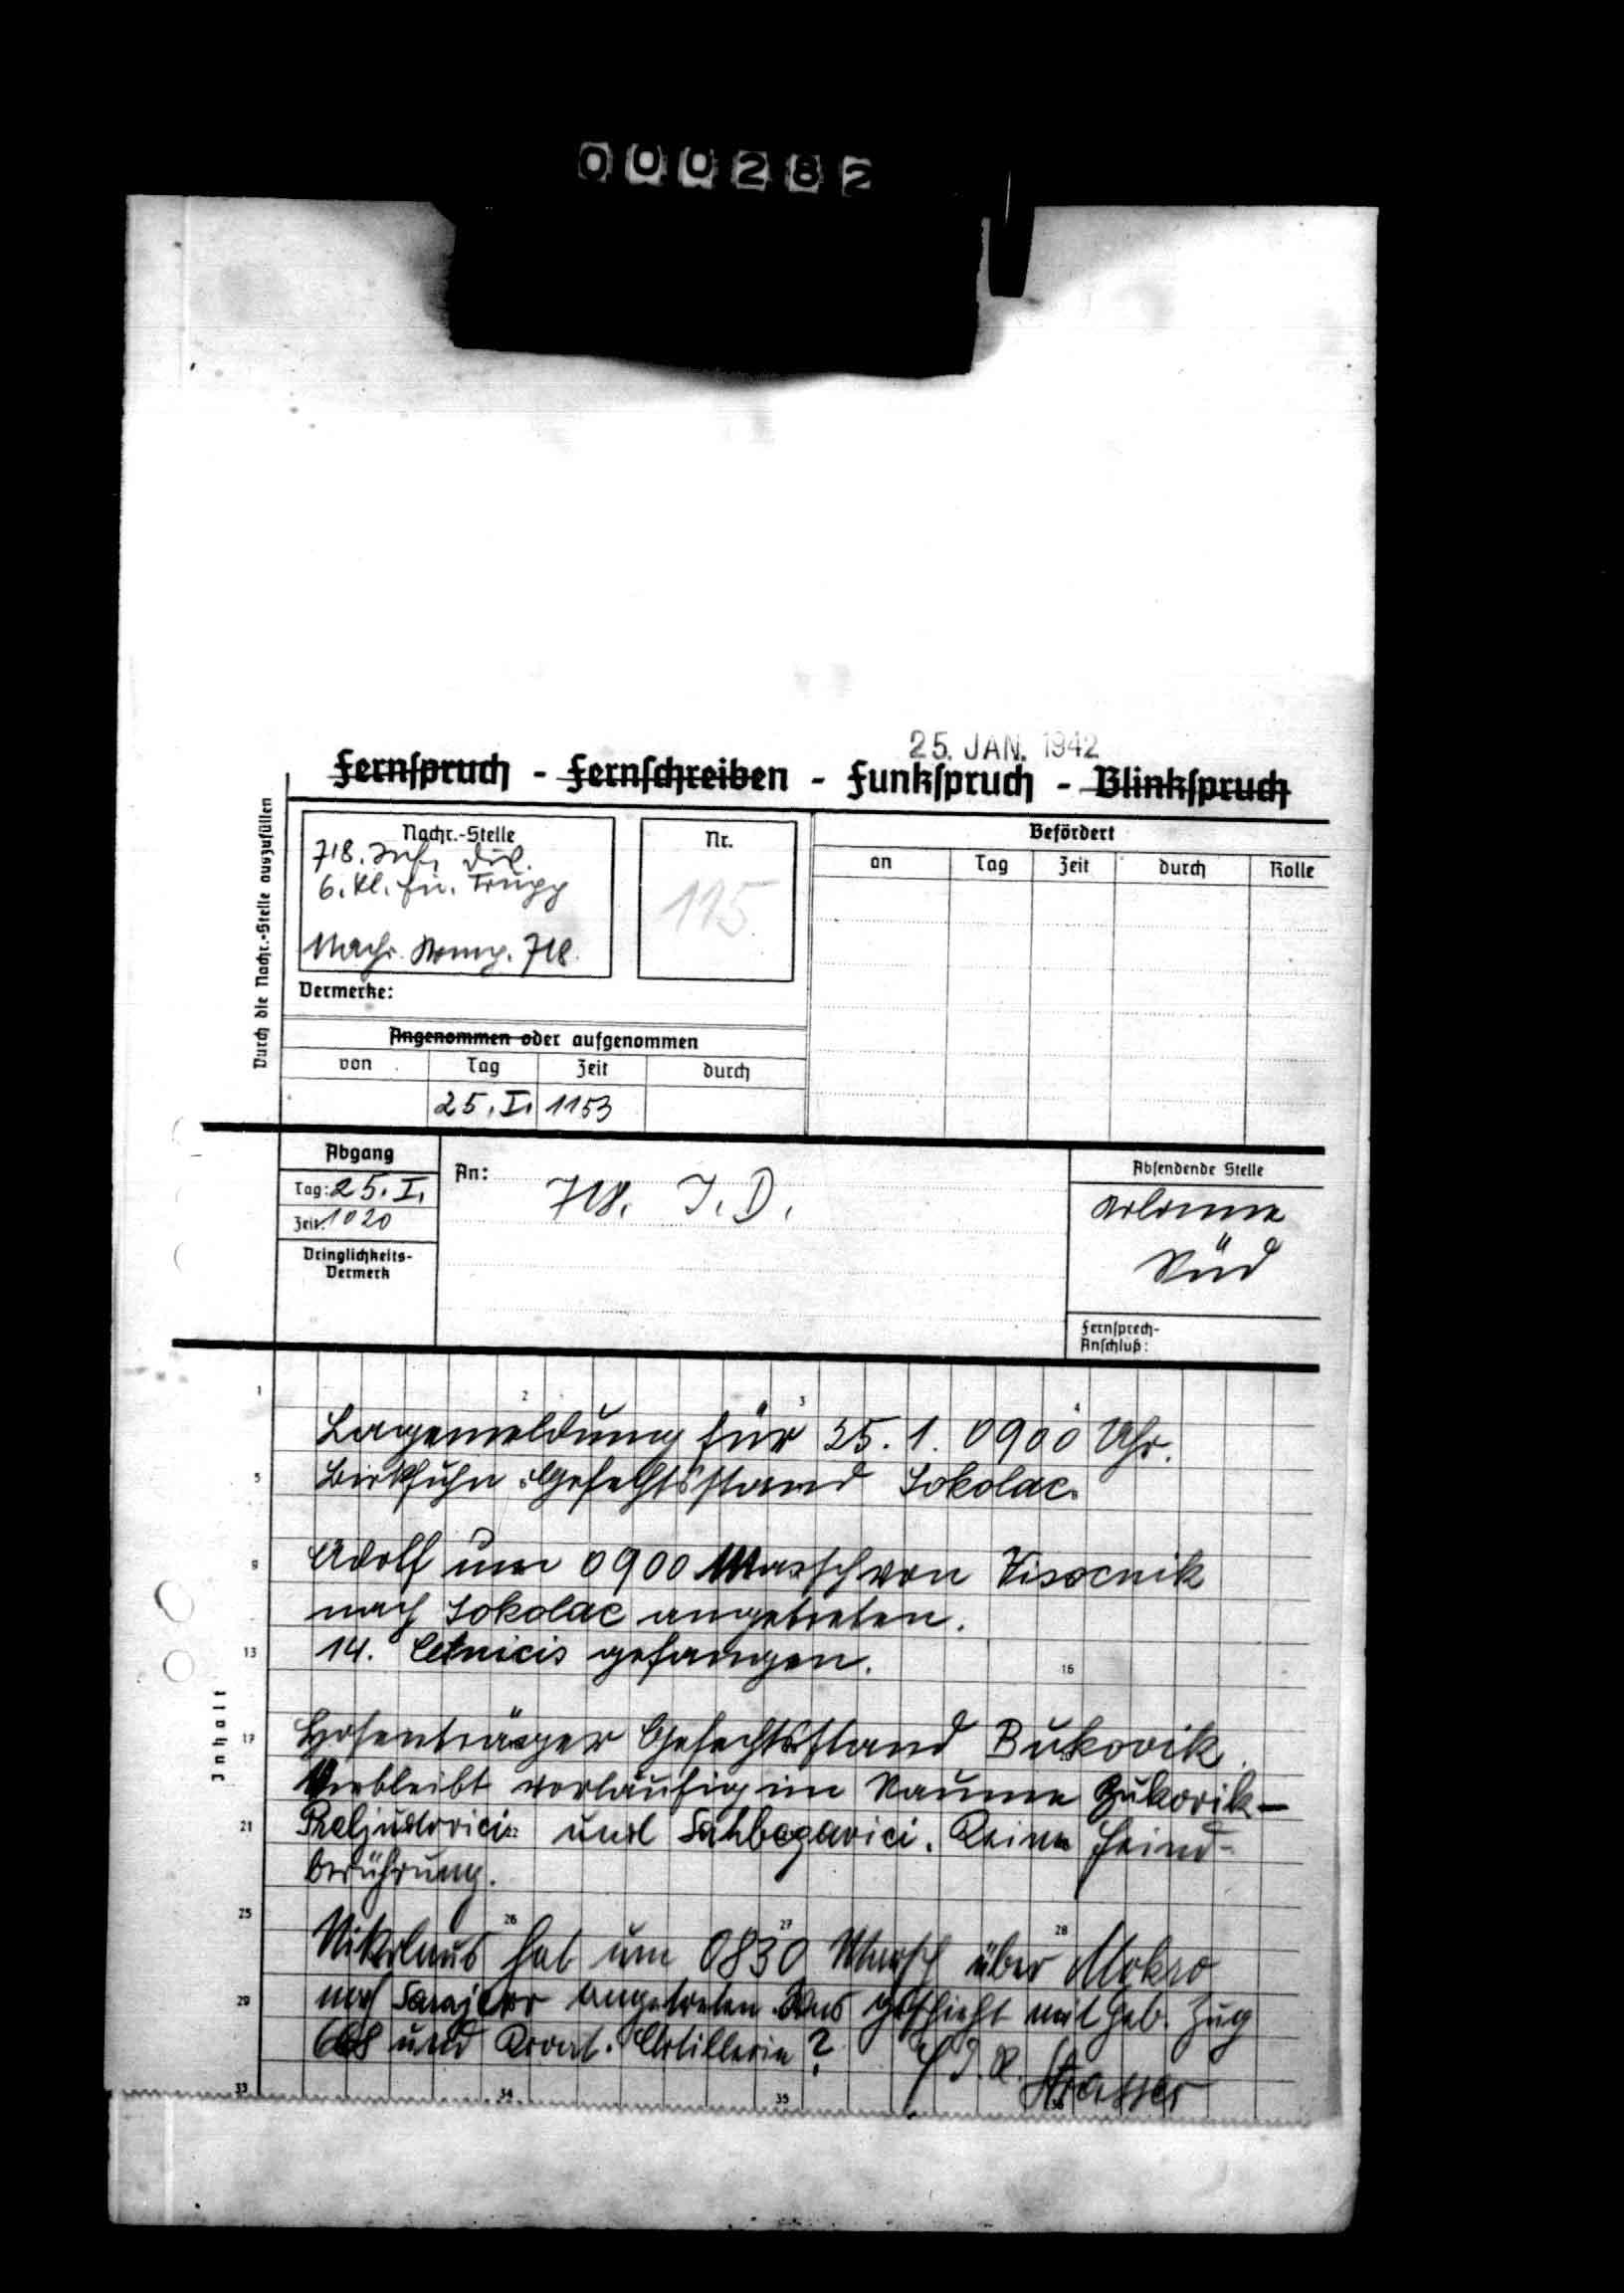 000282
25. JAN. 1942
Fernspruch - Fernschreiben - Funkspruch - Blinkspruch
Durch die Nachr.-Stelle auszufüllen
Nachr.-Stelle
718. Inf. Div.
6. kl. Fu. Trupp
Nachr. Komp. 718.
Nr.
115
Befördert
an Tag Zeit durch Rolle
Vermerke:
Angenommen oder aufgenommen
von Tag Zeit durch
25. I. 1153
Abgang
Tag: 25. I.
Zeit: 1020
Dringlichkeits-
Vermerk
An:
718. I. D.
Absendende Stelle
Kolonne
Süd
Fernsprech-
Anschluß:
Inhalt
1 2 3 4
Lagemeldung für 25. 1. 0900 Uhr.
5
Birkhuhn Gefechtsstand Sokolac.
9
Adolf um 0900 Marsch von Visocnik
nach Sokolac angetreten.
13
14. Cetnicis gefangen.
16
17
Hosenträger Gefechtsstand Bukovik.
Verbleibt vorläufig im Raume Bukovik-
21 22
Preljudovici und Sahbegovici. Keine Feind-
berührung.
25 26 27 28
Nikolaus hat um 0830 Marsch über Mokro
29
nach Sarajevo angetreten. Was geschieht mit Geb. Zug
668 und Kroat. Artillerie?
F. d. R. Strasser
33 34 35 36